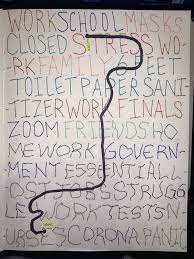 WORK SCHOOL MASKS
CLOSED STRESS WO
RK FAMILY MEET
TOILET PAPER SANI
TIZER WORK FINALS
ZOOM FRIENDS HO
MEWORK GOVERN-
MENT ESSENTIAL L
OST JOBS STRUGG
LE WORK TESTS N-
URSES CORONA PANIC